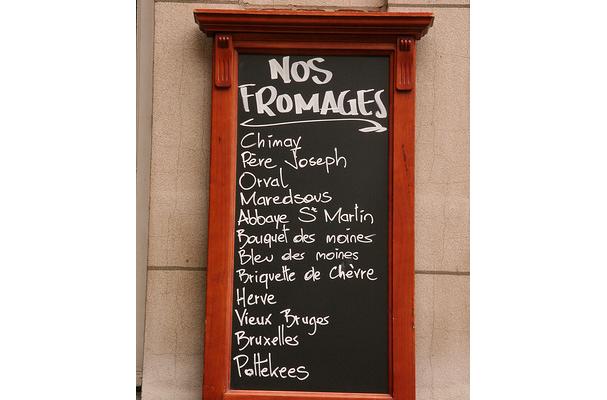 NOS
FROMAGES
Chimay
Père Joseph
Orval
Maredsous
Abbaye St Martin
Bouquet des moines
Bleu des moines
Briquette de Chèvre
Herve
Vieux Bruges
Bruxelles
Pottekees